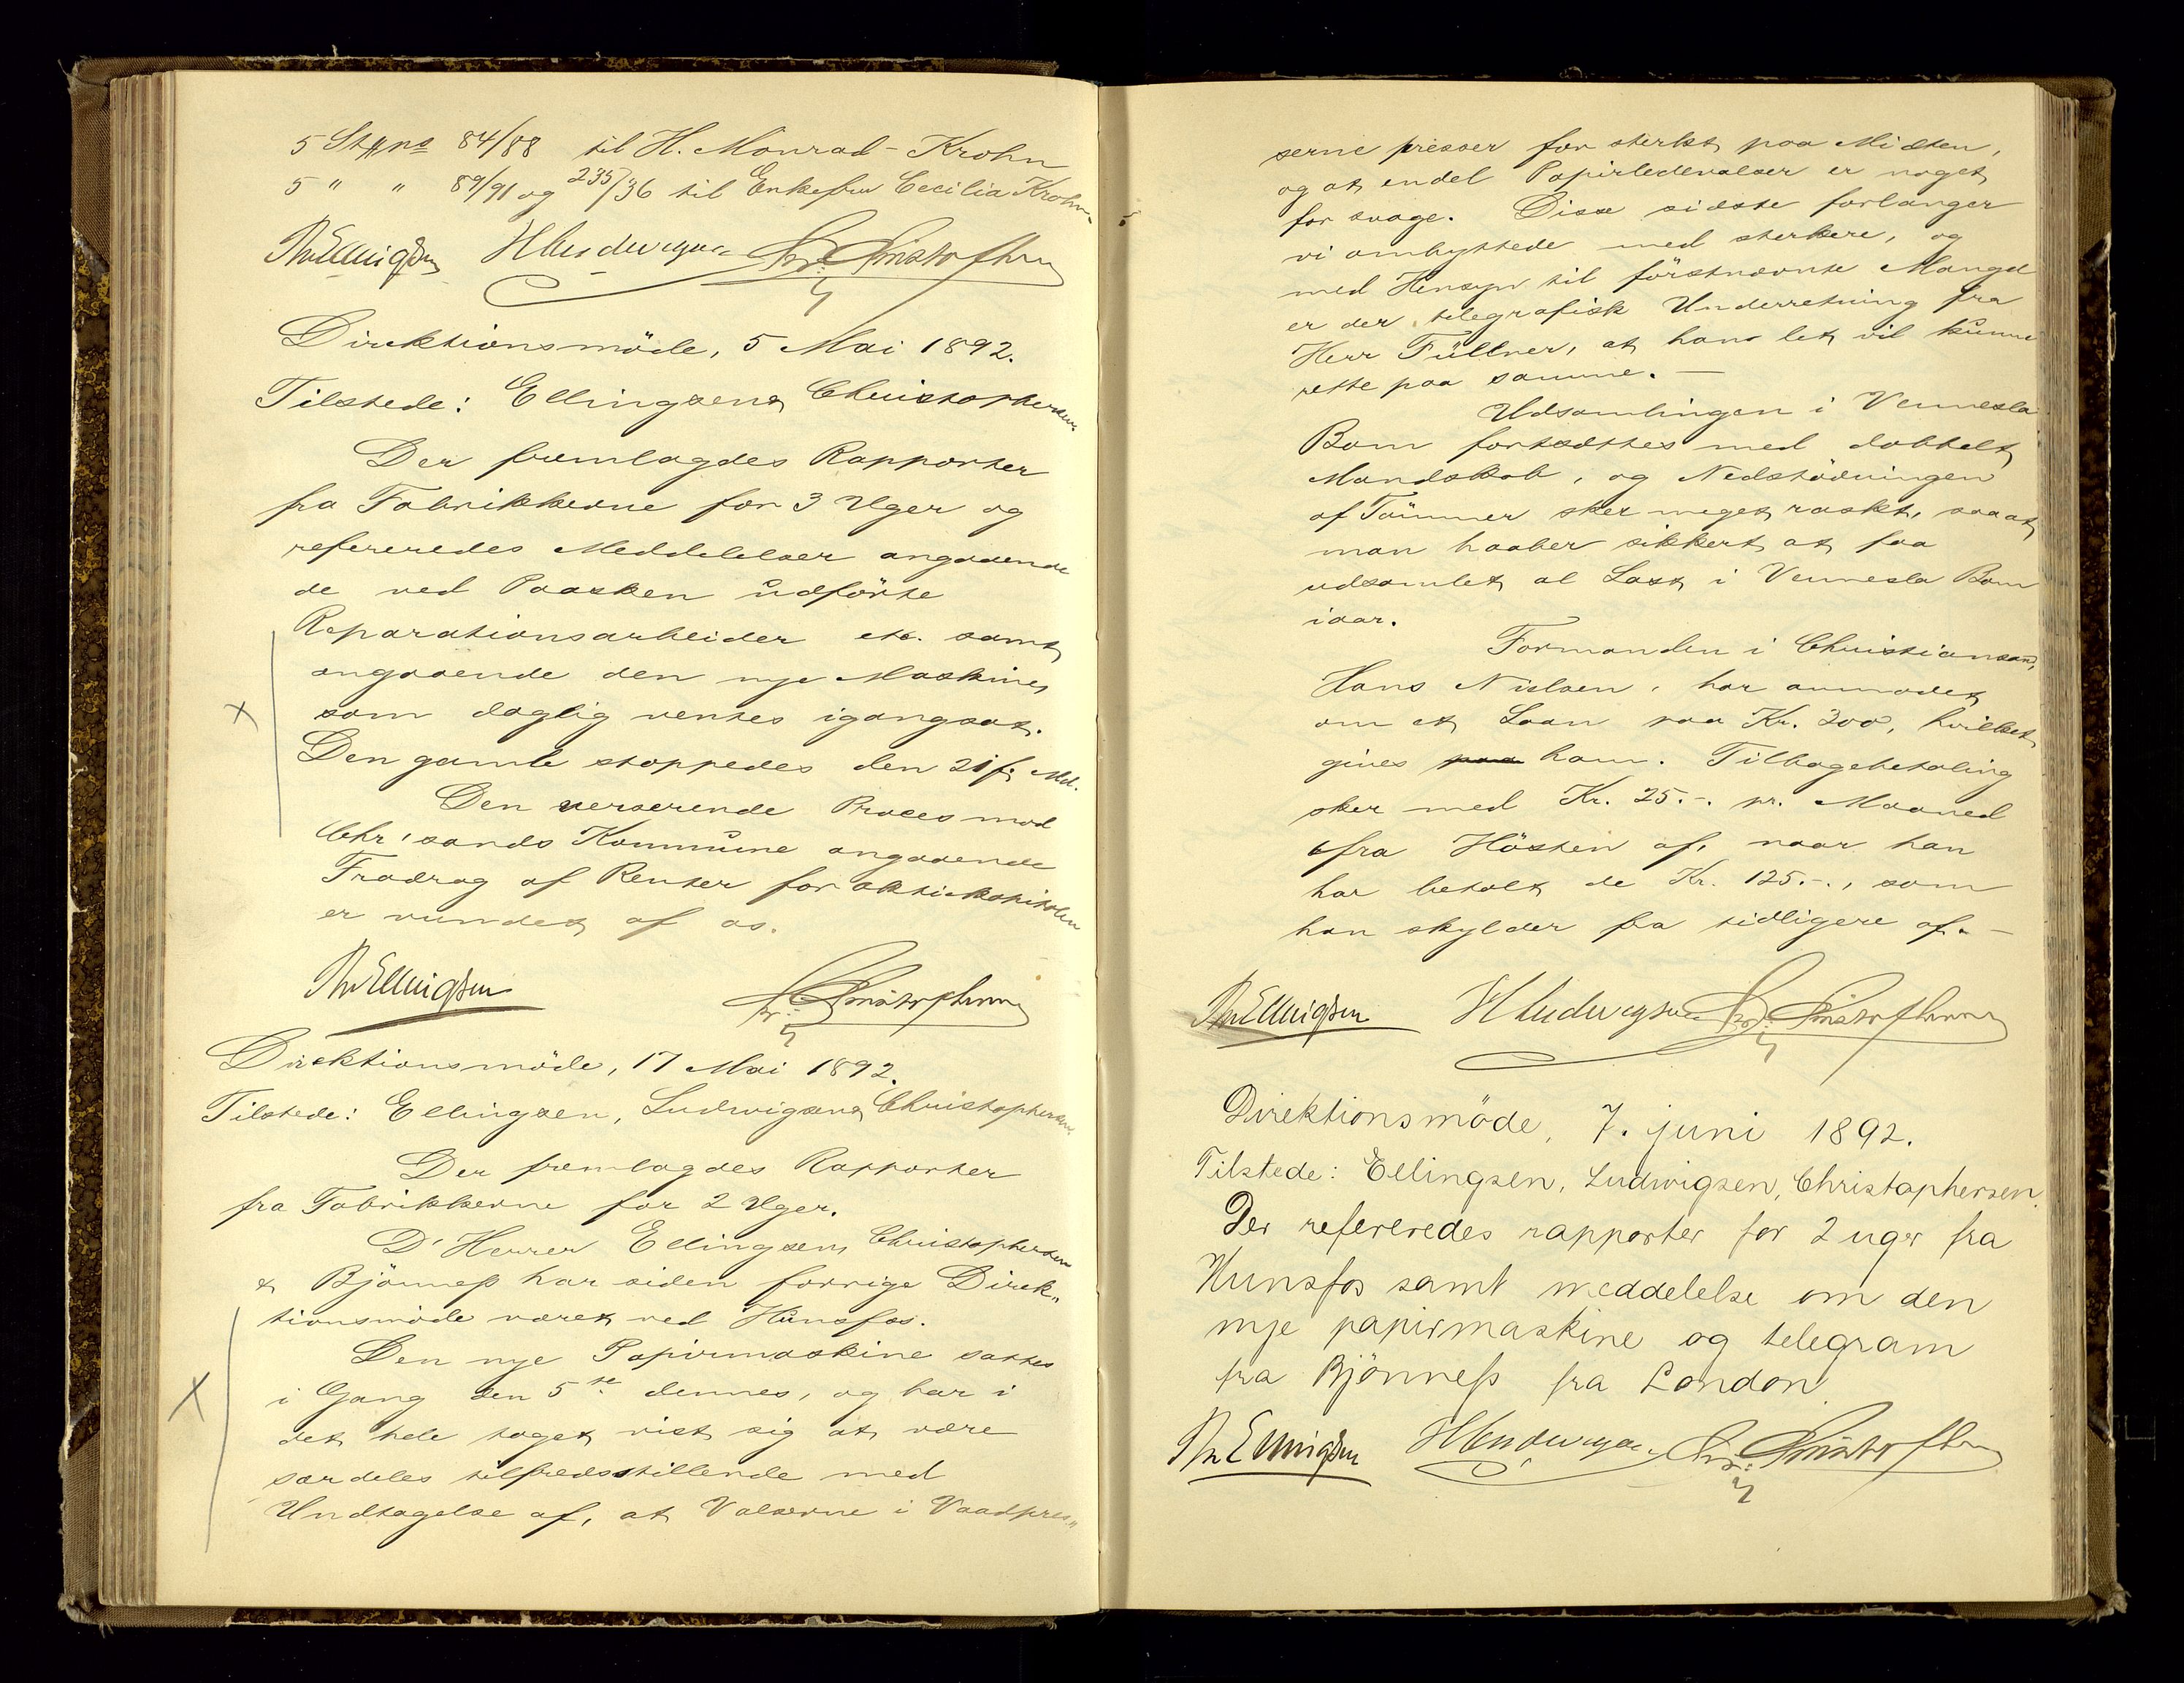 5 St  No 84/88 til H. Monrad-Krohn
5 " " 89/91 og 235/36 til Enkefru Cecilia Krohn.
Th Ellingsen H Ludwigsen Chr. Christophersen
Direktionsmöde, 5 Mai 1892.
Tilstede: Ellingsen & Christophersen
Der fremlagdes Rapporter
fra Fabrikkerne for 3 Uger og
refereredes Meddelelser angaaende
de ved Paasken udförte
Reparationsarbeider etc. samt
angaaende den nye Maskine,
som daglig ventes igangsat.
Den gamle stoppedes den 21 f. Md.
Den verserende Proces mod
Chr.sands Kommune angaaende
Fradrag af Renter for Aktiekapitalen
er vundet af os.
Th Ellingsen Chr. Christophersen
Direktionsmöde, 17 Mai 1892.
Tilstede: Ellingsen, Ludwigsen & Christophersen.
Der fremlagdes Rapporter
fra Fabrikkerne for 2 Uger.
D'Herrer Ellingsen, Christophersen
& Björness har siden forrige Direk„
tionsmöde været ved Hunsfos.
Den nye Papirmaskine sattes
i Gang den 5te dennes, og har i
det hele taget vist sig at være
særdeles tilfredsstillende med
Undtagelse af, at Valserne i Vaadpres„
serne presser for sterkt paa Midten,
og at endel Papirledevalser er noget
for svage. Disse sidste forlanger
vi ombyttede med sterkere, og
med Hensyn til förstnævnte Mangel
er der telegrafisk Underretning fra
Herr Füllner, at han let vil kunne
rette paa samme. —
Udsamlingen i Vennesla
Bom fortsættes med dobbelt
Mandskab, og Nedstödningen
af Tömmer sker meget raskt, saaat
man haaber sikkert at faa
udsamlet al Last i Vennesla Bom
iaar.
Formanden i Christiansand,
Hans Nielsen, har anmodet
om et Laan paa Kr. 300, hvilket
gives paa ham. Tilbagebetaling
sker med Kr. 25.-. pr. Maaned
fra Hösten af, naar han
har betalt de Kr. 125.-., som
han skylder fra tidligere af. —
Th Ellingsen H Ludwigsen Chr. Christophersen
Direktionsmöde, 7. juni 1892.
Tilstede: Ellingsen, Ludwigsen, Christophersen.
Der refereredes rapporter for 2 uger fra
Hunsfos samt meddelelse om den
nye papirmaskine og telegram
fra Björness fra London.
Th Ellingsen H Ludwigsen Chr. Christophersen